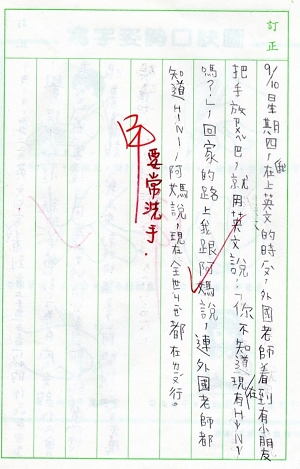 訂正
9/10星期四,我在上英文的時,外國老師看到有小朋友
把手放巴,就用英文說,「你不知道現在有H1N1
嗎?」,回家的路上我跟阿媽說,連外國老師都
知道H1N1,阿媽說,現在全世ㄐㄝ都在行。
要常洗手.